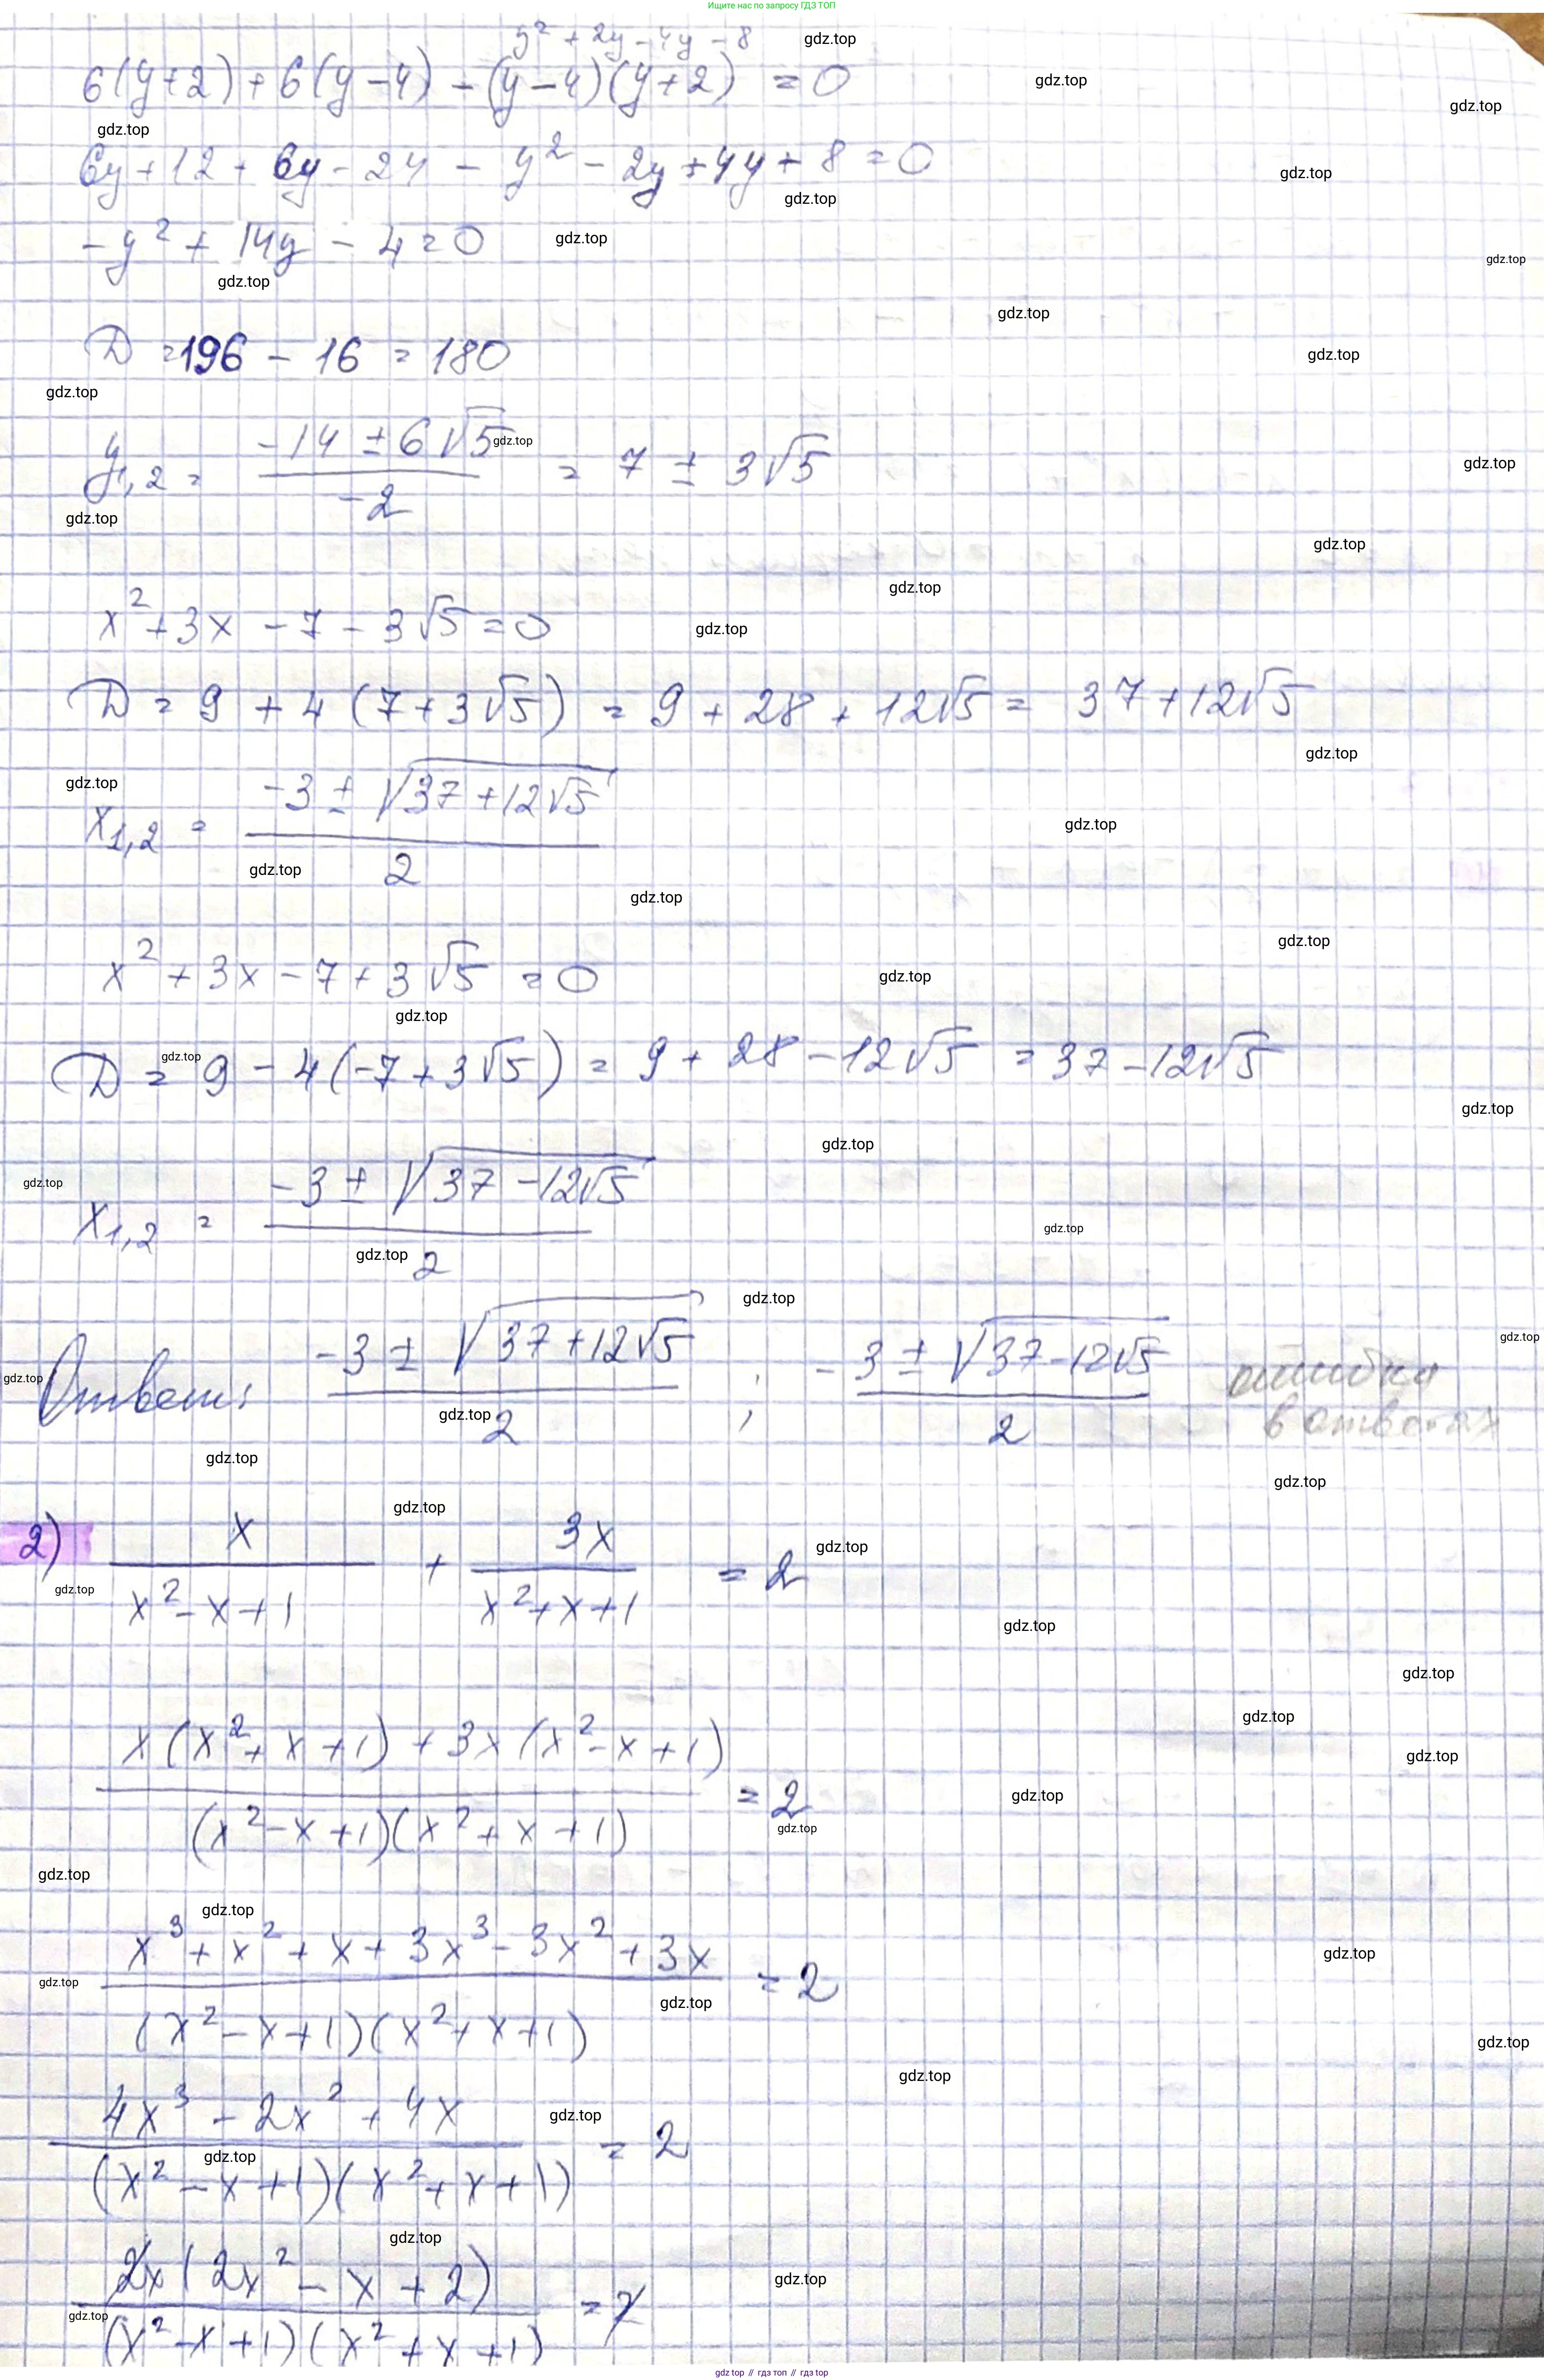 Ищите нас по запросу ГДЗ ТОП
y² + 2y - 4y - 8
6(y+2) + 6(y-4) - (y-4)(y+2) = 0
6y + 12 + 6y - 24 - y² - 2y + 4y + 8 = 0
-y² + 14y - 4 = 0
D = 196 - 16 = 180
y₁,₂ = (-14 ± 6√5)/(-2) = 7 ± 3√5
x² + 3x - 7 - 3√5 = 0
D = 9 + 4(7 + 3√5) = 9 + 28 + 12√5 = 37 + 12√5
x₁,₂ = (-3 ± √(37 + 12√5))/2
x² + 3x - 7 + 3√5 = 0
D = 9 - 4(-7 + 3√5) = 9 + 28 - 12√5 = 37 - 12√5
x₁,₂ = (-3 ± √(37 - 12√5))/2
Ответ: (-3 ± √(37 + 12√5))/2 ; (-3 ± √(37 - 12√5))/2 ошибка в ответах
2) x/(x² - x + 1) + 3x/(x² + x + 1) = 2
(x(x² + x + 1) + 3x(x² - x + 1))/((x² - x + 1)(x² + x + 1)) = 2
(x³ + x² + x + 3x³ - 3x² + 3x)/((x² - x + 1)(x² + x + 1)) = 2
(4x³ - 2x² + 4x)/((x² - x + 1)(x² + x + 1)) = 2
2x(2x² - x + 2)/((x² - x + 1)(x² + x + 1)) = 2
gdz.top // гдз топ // gdz.top